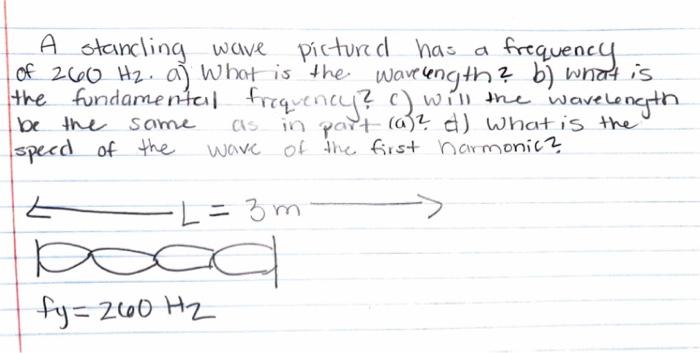 A standing wave pictured has a frequency
of 260 Hz. a) What is the wavelength? b) what is
the fundamental frequency? c) will the wavelength
be the same as in part (a)? d) What is the
speed of the wave of the first harmonic?
L = 3m
fy = 260 Hz